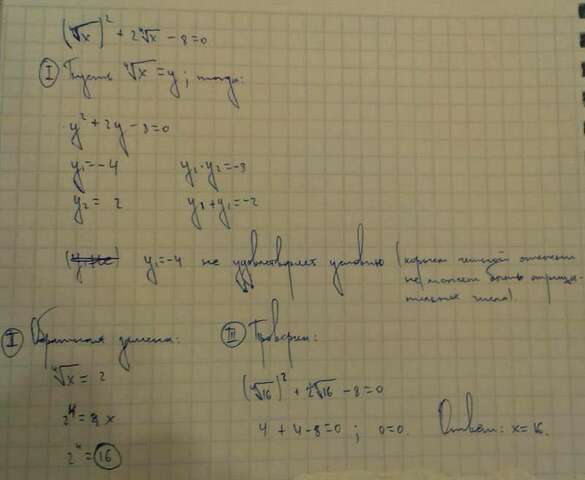 (⁴√x)² + 2⁴√x − 8 = 0
I Пусть ⁴√x = y; тогда:
y² + 2y − 8 = 0
y₁ = −4 y₁·y₂ = −8
y₂ = 2 y₂ + y₁ = −2
y₁ = −4 не удовлетворяет условию (корень чётной степени
не может быть отрица-
тельное число).
II Обратная замена: III Проверка:
⁴√x = 2
(⁴√16)² + 2⁴√16 − 8 = 0
2⁴ = x
4 + 4 − 8 = 0; 0 = 0. Ответ: x = 16.
2⁴ = 16